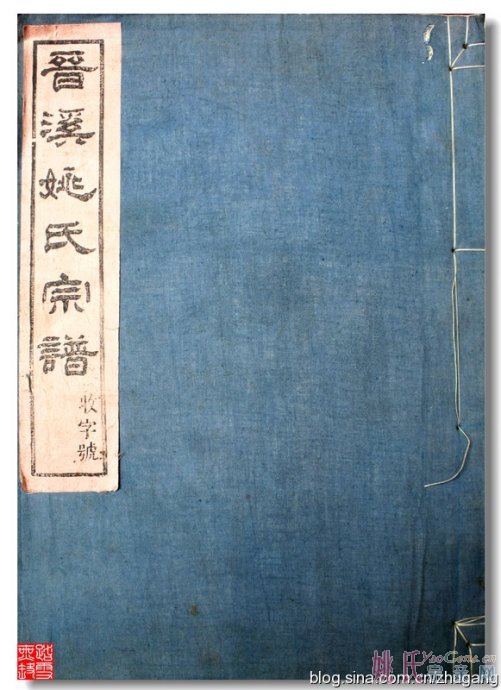 晉溪姚氏宗譜
收字號
姚氏
YaoGens.cn
blog.sina.com.cn/zhugang